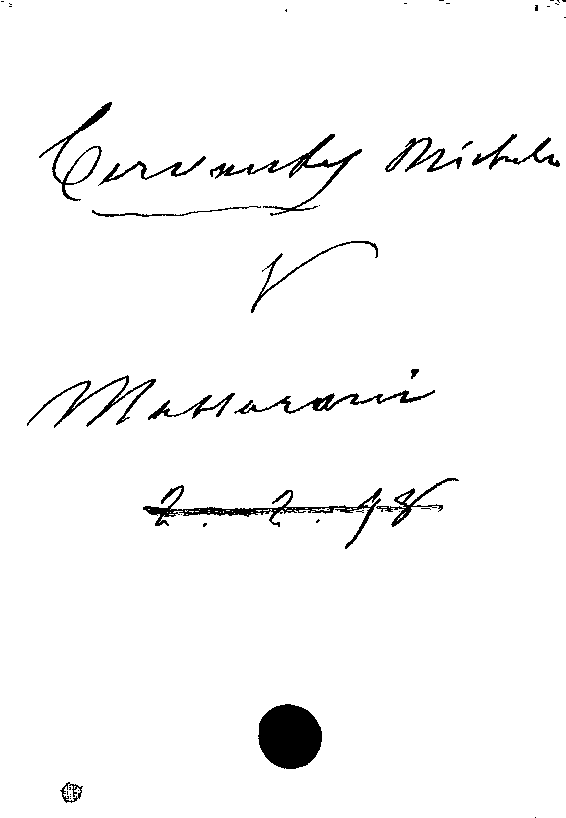 Cervansky Michele
V
Massarani
2. 2. 98